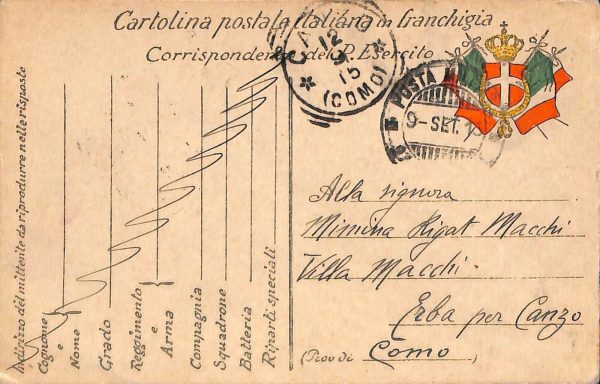 Cartolina postale italiana in franchigia
Corrispondenza del R. Esercito
CANZO
12
9
15
(COMO)
POSTA MI
9-SET.1
Indirizzo del mittente da riprodurre nelle risposte
Cognome
e
Nome
Grado
Reggimento
e
Arma
Compagnia
Squadrone
Batteria
Riparti speciali
Alla signora
Mimina Rigat Macchi
Villa Macchi
Erba per Canzo
(Prov di Como